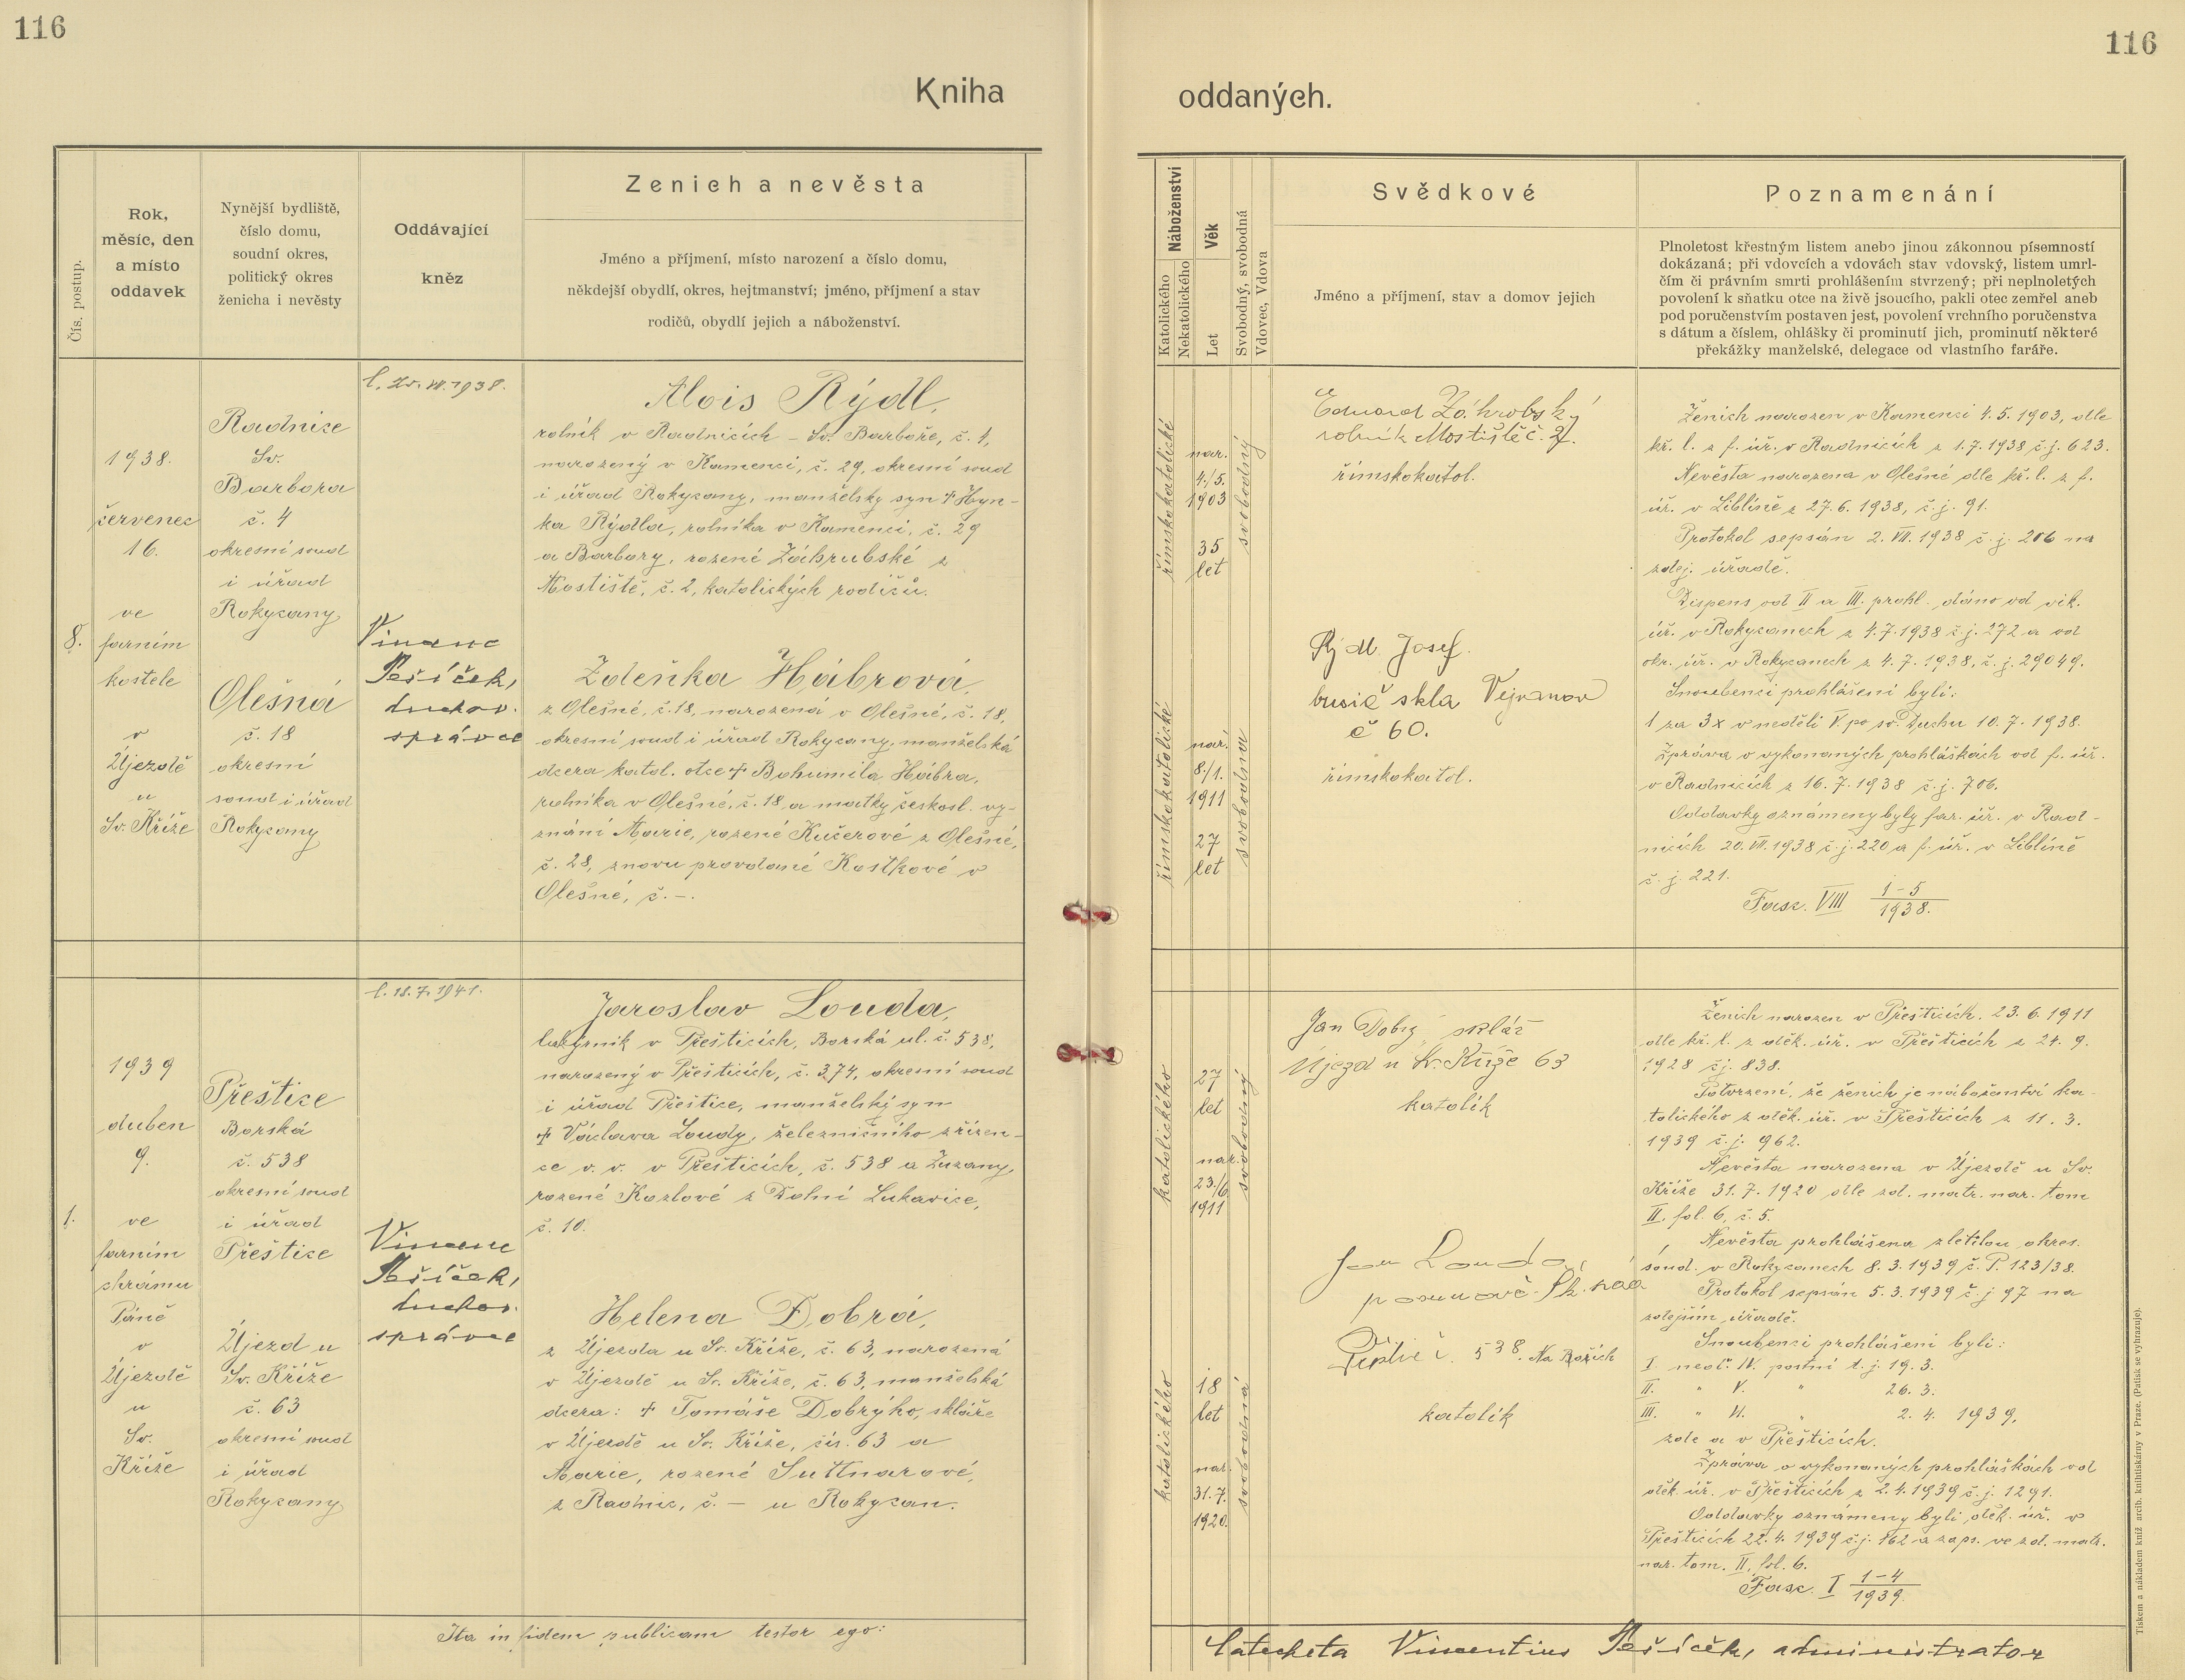 116
116
Kniha
oddaných.
Čís. postup.
Rok,
měsíc, den
a místo
oddavek
Nynější bydliště,
číslo domu,
soudní okres,
politický okres
ženicha i nevěsty
Oddávající
kněz
Zenich a nevěsta
Jméno a příjmení, místo narození a číslo domu,
někdejší obydlí, okres, hejtmanství; jméno, příjmení a stav
rodičů, obydlí jejich a náboženství.
Náboženství
Katolického
Nekatolického
Věk
Let
Svobodný, svobodná
Vdovec, Vdova
Svědkové
Jméno a příjmení, stav a domov jejich
Poznamenání
Plnoletost křestným listem anebo jinou zákonnou písemností
dokázaná; při vdovcích a vdovách stav vdovský, listem umrl-
čím či právním smrti prohlášením stvrzený; při neplnoletých
povolení k sňatku otce na živě jsoucího, pakli otec zemřel aneb
pod poručenstvím postaven jest, povolení vrchního poručenstva
s dátum a číslem, ohlášky či prominutí jich, prominutí některé
překážky manželské, delegace od vlastního faráře.
8.
1938.
červenec
16.
ve
farním
kostele
v
Újezdě
u
Sv. Kříže
Radnice
Sv.
Barbora
č. 4
okresní soud
i úřad
Rokycany
Olešná
č. 18
okresní
soud i úřad
Rokycany
VII. 1938.
Vincenc
Pešíček,
duchov.
správce
Alois Rýdl,
rolník v Radnicích - Sv. Barboře, č. 1,
narozený v Kamenci, č. 29, okresní soud
i úřad Rokycany, manželský syn † Hyn-
ka Rýdla, rolníka v Kamenci, č. 29
a Barbory, rozené Záhrubské z
Mostiště, č. 2, katolických rodičů.
Zdeňka Hábrová,
z Olešné, č. 18, narozená v Olešné, č. 18,
okresní soud i úřad Rokycany, manželská
dcera katol. otce † Bohumila Hábra,
rolníka v Olešné, č. 18 a matky českosl. vy-
znání Marie, rozené Kučerové z Olešné,
č. 28, znovu provdané Kostkové v
Olešné, č. -.
římskokatolické
nar.
4./5.
1903
35
let
svobodný
římskokatolické
nar.
8./1.
1911
27
let
svobodna
Eduard Záhrobský
rolník Mostiště č. 2.
římskokatol.
Rýdl Josef.
brusič skla Vejvanov
č 60.
římskokatol.
Ženich narozen v Kamenci 4. 5. 1903, dle
kř. l. z f. úř. v Radnicích z 1. 7. 1938 č. j. 623.
Nevěsta narozena v Olešné dle kř. l. z f.
úř. v Liblíně z 27. 6. 1938, č. j. 91.
Protokol sepsán 2. VII. 1938 č. j. 206 na
zdej. úřadě.
Dispens od II a III. prohl. dáno od vik.
úř. v Rokycanech z 4. 7. 1938 č. j. 272 a od
okr. úř. v Rokycanech z 4. 7. 1938, č. j. 29049.
Snoubenci prohlášeni byli:
1 za 3x v neděli V. po sv. Duchu 10. 7. 1938.
Zpráva o vykonaných prohláškách od f. úř.
v Radnicích z 16. 7. 1938 č. j. 706.
Oddavky oznámeny byly far. úř. v Rad-
nicích 20. VII. 1938 č. j. 220 a f. úř. v Liblíně
č. j. 221.
Fasc. VIII 1-5
1938.
1.
1939
duben
9.
ve
farním
chrámu
Páně
v
Újezdě
u
Sv.
Kříže
Přeštice
Borská
č. 538
okresní soud
i úřad
Přeštice
Újezd u
Sv. Kříže
č. 63
okresní soud
i úřad
Rokycany
l. 18. 7. 1941.
Vincenc
Pešíček,
duchov.
správce
Jaroslav Louda,
v Přešticích, Borská ul. č. 538,
narozený v Přešticích, č. 374, okresní soud
i úřad Přeštice, manželský syn
† Václava Loudy, železničního zřízen-
ce v. v. v Přešticích, č. 538 a Zuzany,
rozené Kozlové z Dolní Lukavice,
č. 10.
Helena Dobrá,
z Újezda u Sv. Kříže, č. 63, narozená
v Újezdě u Sv. Kříže, č. 63, manželská
dcera: † Tomáše Dobrýho, skláře
v Újezdě u Sv. Kříže, čís. 63 a
Marie, rozené Suttnarové,
z Radnic, č. - u Rokycan.
katolického
27
let
nar.
23./6
1911
svobodný
katolického
18
let
nar.
31. 7.
1920.
svobodná
Jan Dobrý sklář
Újezd u Sv. Kříže 63
katolík
Jan Louda
538. Na
katolík
Ženich narozen v Přešticích. 23. 6. 1911
dle kř. l. z děk. úř. v Přešticích z 24. 9.
1928 čj. 838.
Potvrzení, že ženich je náboženství ka-
tolického z děk. úř. v Přešticích z 11. 3.
1939 č. j. 962.
Nevěsta narozena v Újezdě u Sv.
Kříže 31. 7. 1920 dle zd. matr. nar. tom
II. fol. 6, č. 5.
Nevěsta prohlášena zletilou okres.
soud. v Rokycanech 8. 3. 1939 č. P. 123/38.
Protokol sepsán 5. 3. 1939 č. j 97 na
zdejším úřadě.
Snoubenci prohlášeni byli:
I. neděl. IV. postní t. j. 19. 3.
II. " V. " 26. 3.
III. " VI. " 2. 4. 1939,
zde a v Přešticích.
Zpráva o vykonaných prohláškách od
děk. úř. v Přešticích z 2. 4. 1939 č. j. 1291.
Oddavky oznámeny byli děk. úř. v
Přešticích 22. 4. 1939 č. j. 162 a zaps. ve zd. matr.
nar. tom. II, fol. 6.
Fasc. I 1-4
1939.
Ita in fidem publicam testor ego:
Catecheta Vincentius Pešíček, administrator
Tiskem a nákladem kníž. arcib. knihtiskárny v Praze. (Patisk se vyhrazuje).